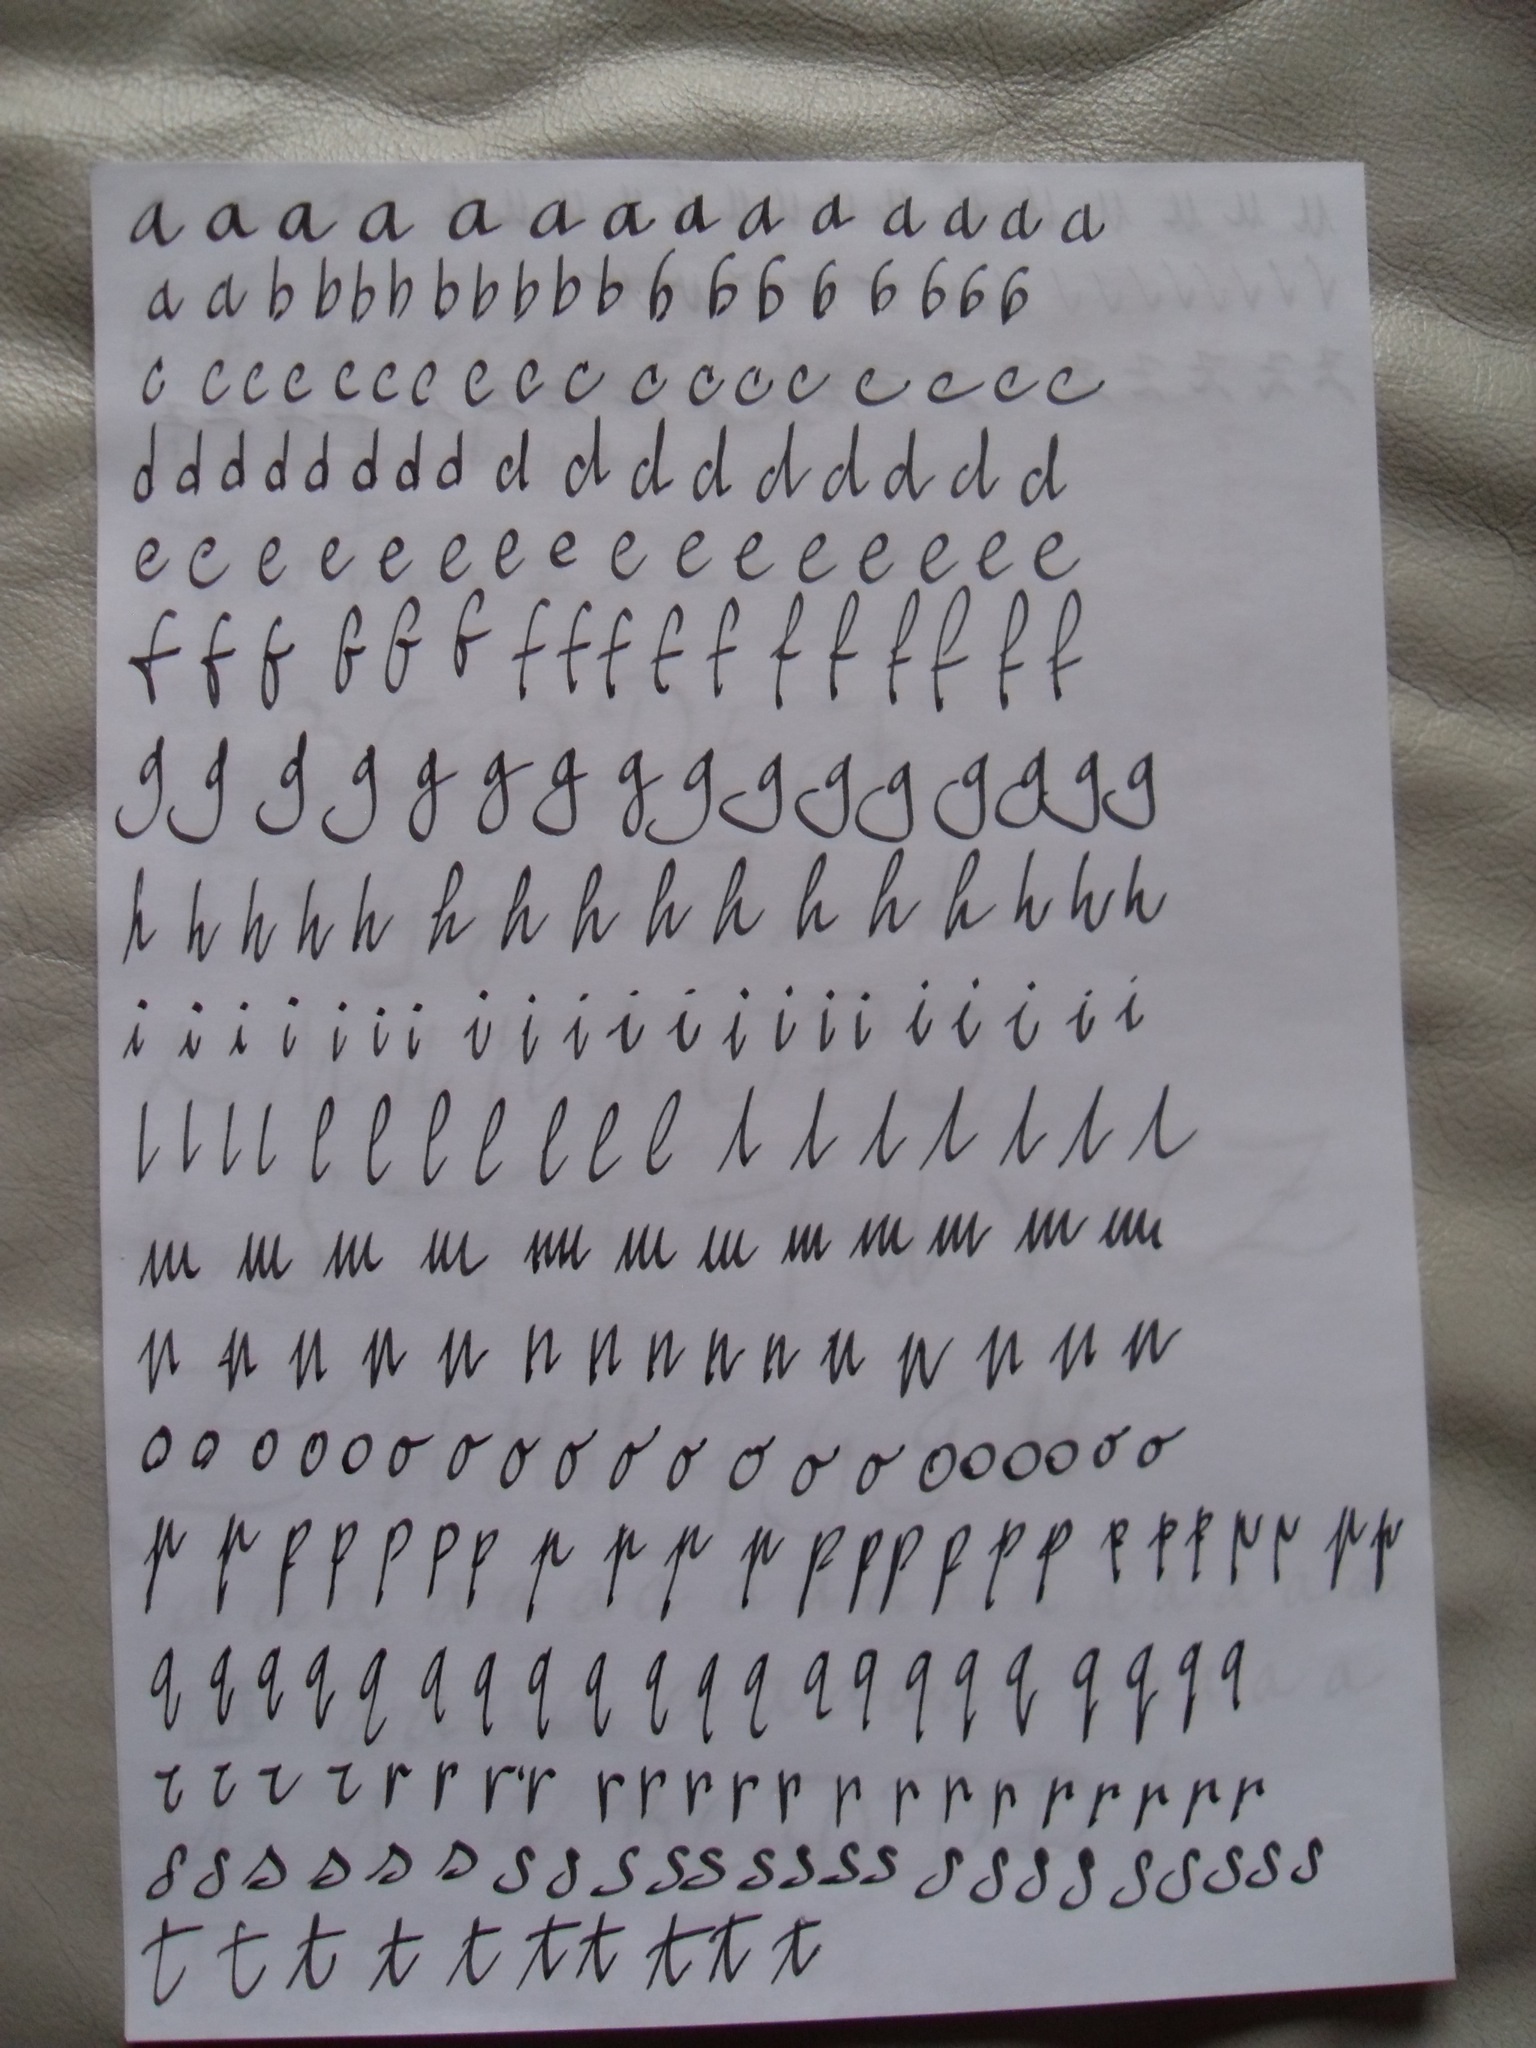 a a a a a a a a a a a a a a
a a b b b b b b b b b b b b b b b b b
c c c c c c c c c c c c c c c c c c
d d d d d d d d d d d d d d d d d
e e e e e e e e e e e e e e e e
f f f f f f f f f f f f f f f f f
g g g g g g g g g g g g g g g g
h h h h h h h h h h h h h h h h
i i i i i i i i i i i i i i i i i i i i i
l l l l l l l l l l l l l l l l l l
m m m m m m m m m m m m
n n n n n n n n n n n n n n n
o o o o o o o o o o o o o o o o o o o o
p p p p p p p p p p p p p p p p p p p p p p p p
q q q q q q q q q q q q q q q q q q q q q
r r r r r r r r r r r r r r r r r r r r r r
s s s s s s s s s s s s s s s s s s s s s s s
t t t t t t t t t t